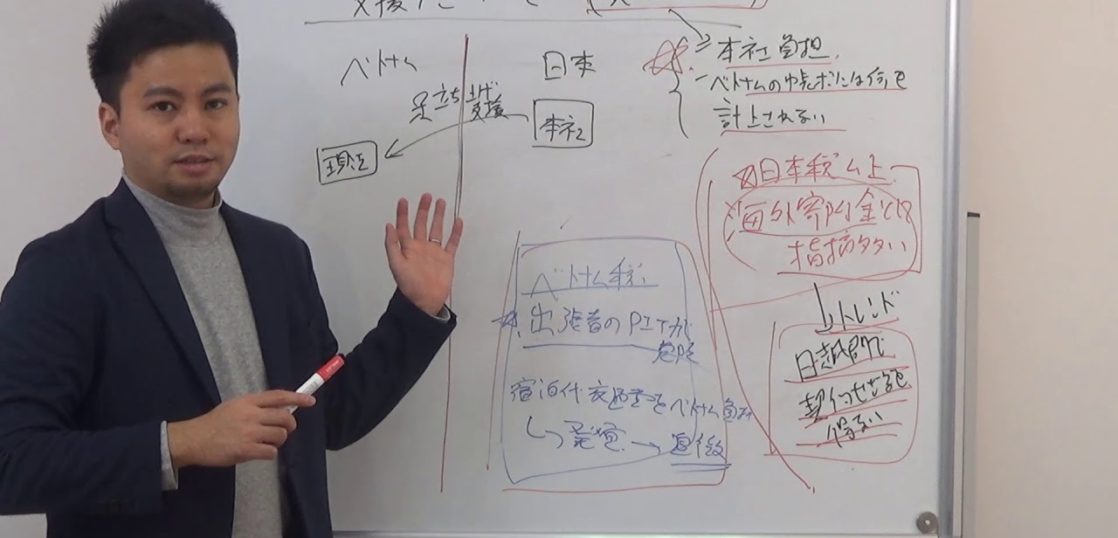 ベトナム
日本
立ち上げ
支援
現法
本社
本社負担
ベトナムの帳ボには何も
計上されない
日本税ム上
海外寄附金とは
指摘多い
トレンド
日越間で
契約せざるを
得ない
ベトナム税
出張者のPITが
危険
宿泊代交通費をベトナム負担
発覚
追徴